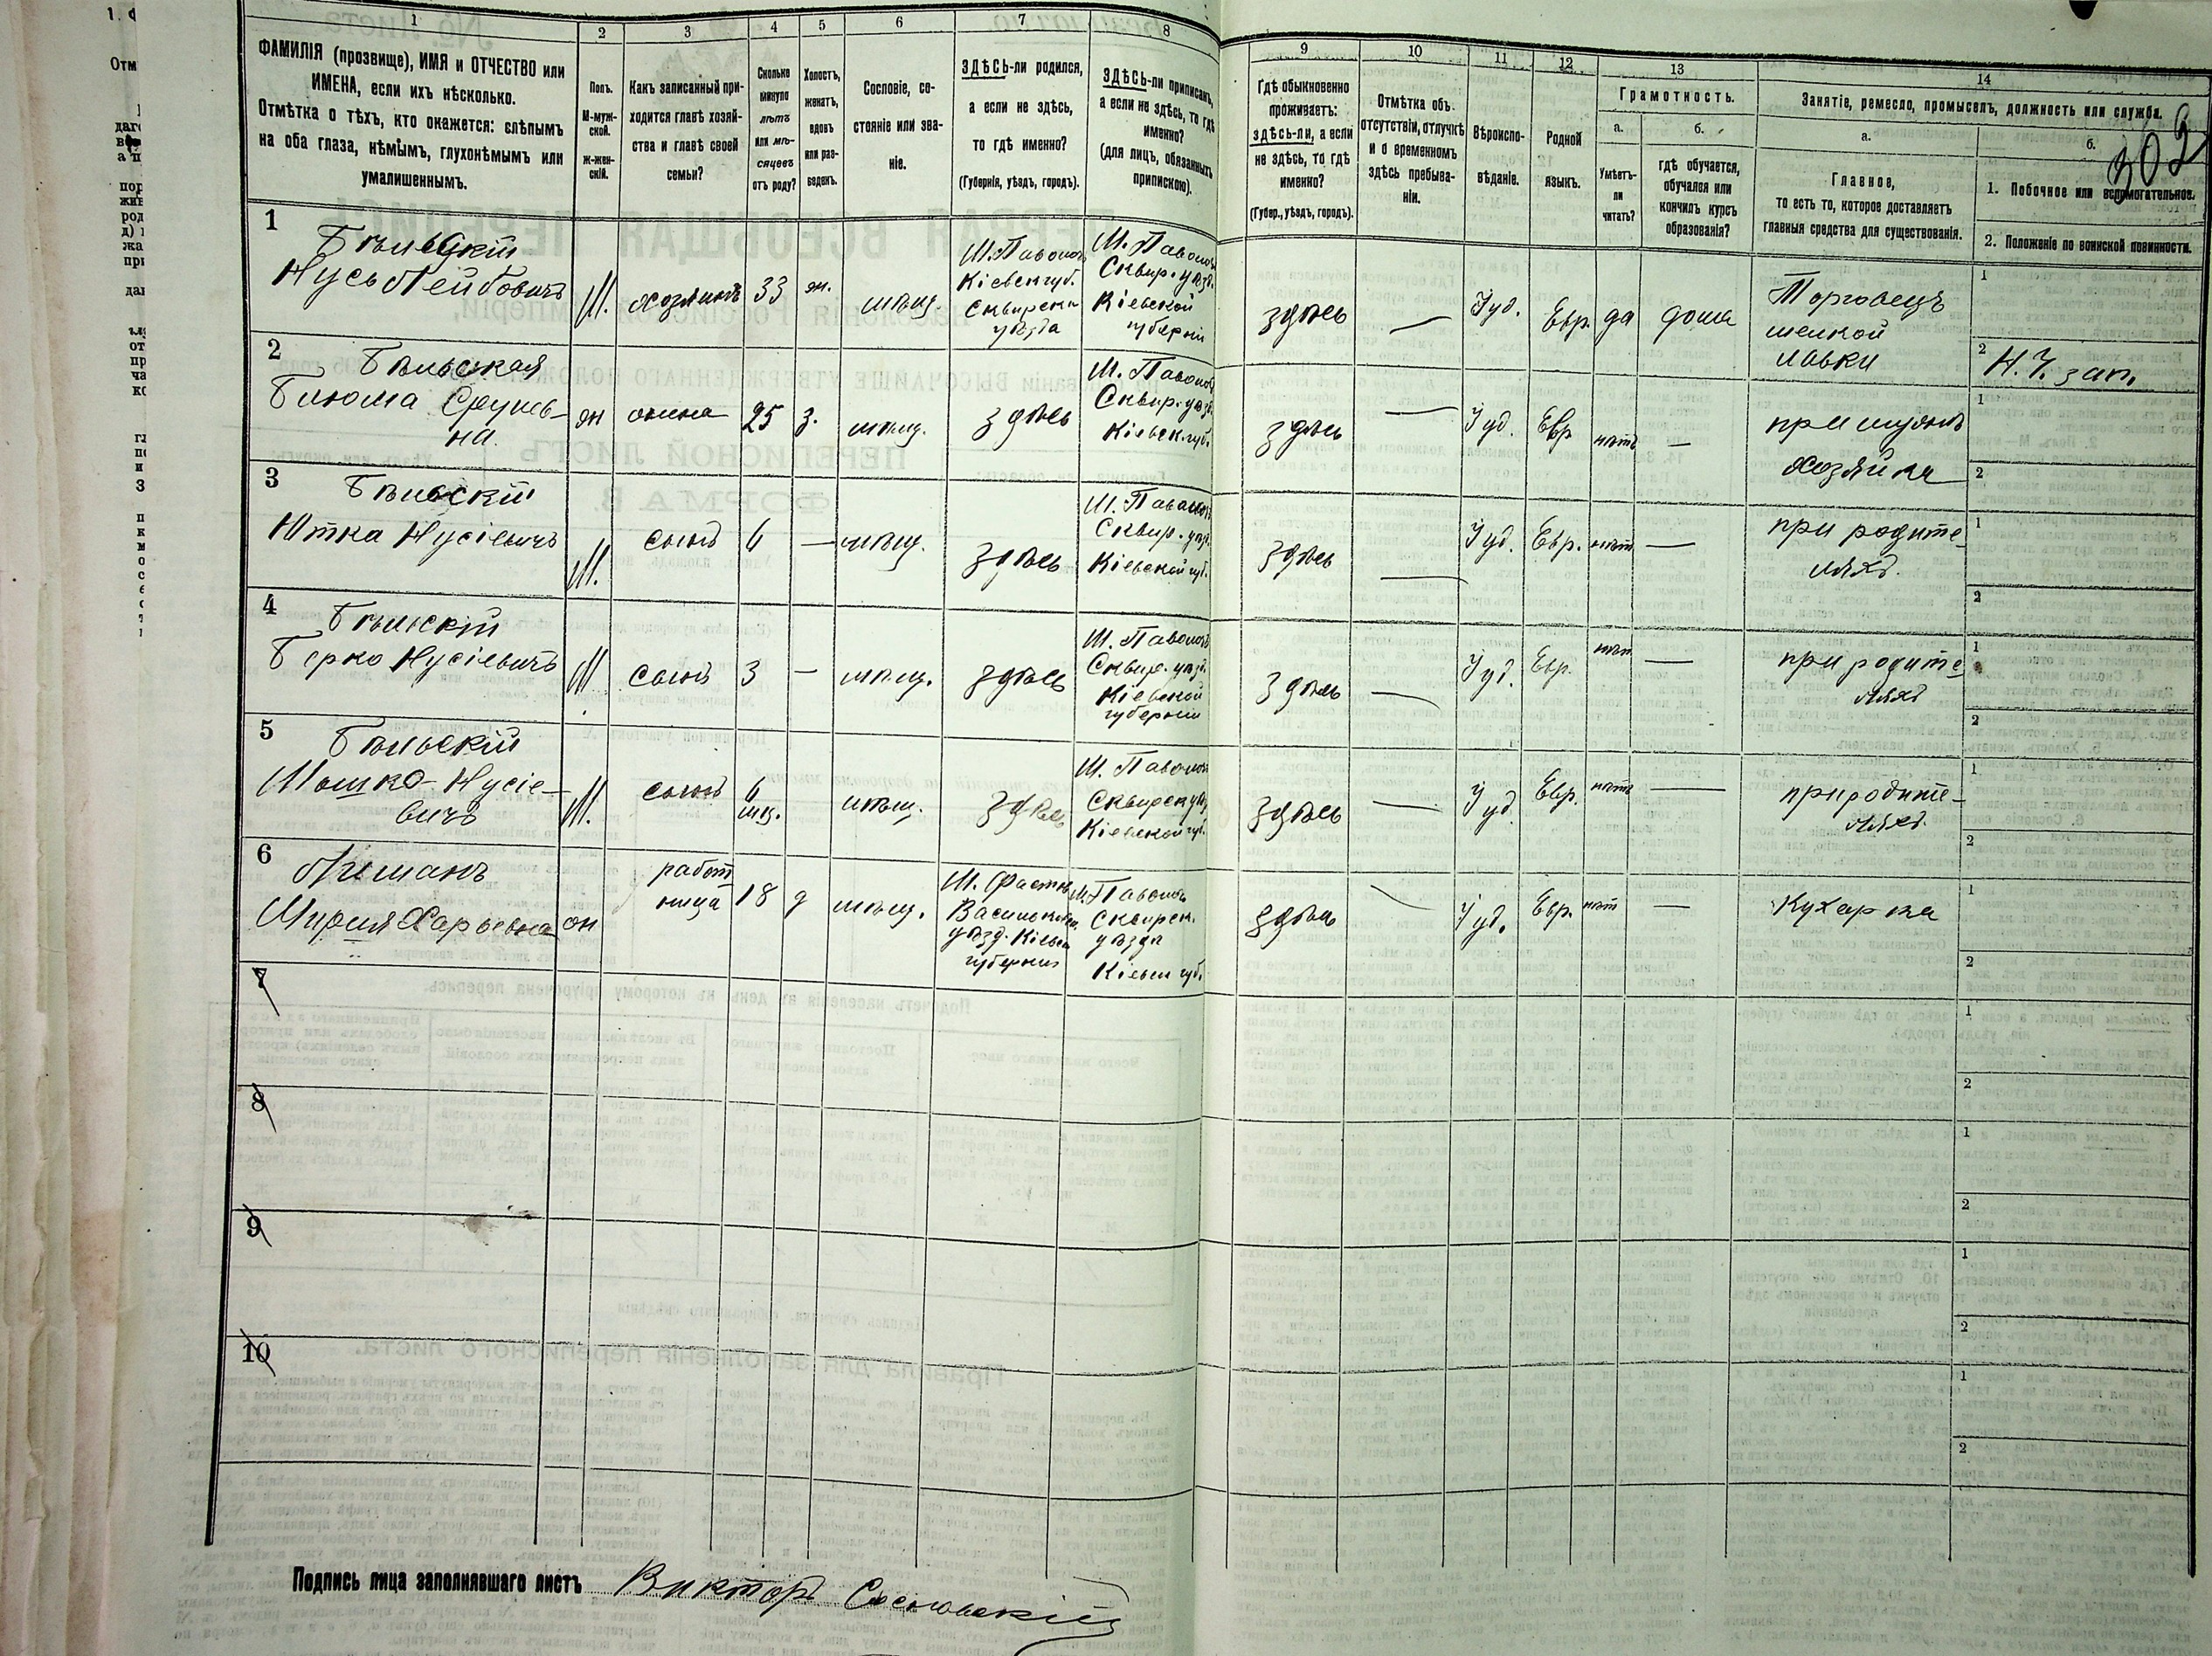 302
1 2 3 4 5 6 7 8 9 10 11 12 13 14
ФАМИЛІЯ (прозвище), ИМЯ и ОТЧЕСТВО или
ИМЕНА, если ихъ нѣсколько.
Отмѣтка о тѣхъ, кто окажется: слѣпымъ
на оба глаза, нѣмымъ, глухонѣмымъ или
умалишеннымъ.
Полъ.
М-муж-
ской.
ж-жен-
скій.
Какъ записанный при-
ходится главѣ хозяй-
ства и главѣ своей
семьи?
Сколько
минуло
лѣтъ
или мѣ-
сяцевъ
отъ роду?
Холостъ,
женатъ,
вдовъ
или раз-
веденъ.
Сословіе, со-
стояніе или зва-
ніе.
ЗДѢСЬ-ли родился,
а если не здѣсь,
то гдѣ именно?
(Губернія, уѣздъ, городъ).
ЗДѢСЬ-ли приписанъ,
а если не здѣсь, то гдѣ
именно?
(для лицъ, обязанныхъ
припискою).
Гдѣ обыкновенно
проживаетъ:
здѣсь-ли, а если
не здѣсь, то гдѣ
именно?
(Губер., уѣздъ, городъ).
Отмѣтка объ
отсутствіи, отлучкѣ
и о временномъ
здѣсь пребыва-
ніи.
Вѣроиспо-
вѣданіе.
Родной
языкъ.
Грамотность.
а.
Умѣетъ-
ли
читать?
б.
гдѣ обучается,
обучался или
кончилъ курсъ
образованія?
Занятіе, ремесло, промыселъ, должность или служба.
а.
Главное,
то есть то, которое доставляетъ
главныя средства для существованія.
б.
1. Побочное или вспомогательное.
2. Положеніе по воинской повинности.
1
Бѣльскій
Нусь Лейбовичъ
М. хозяинъ 33 ж. мѣщ.
М. Паволочь
Кіевск губ.
Сквирскаго
уѣзда
М. Паволочь
Сквир. уѣзд.
Кіевской
губерніи
здѣсь — Іуд. Евр. да дома
Торговецъ
мелкой
лавки
1
2 Н. Ч. зап.
2
Бѣльская
Блюма Срулев-
на.
ж жена 25 з. мѣщ. здѣсь
М. Паволочь
Сквир. уѣзд.
Кіевск. губ.
здѣсь — Іуд. Евр нѣтъ —
при мужѣ
хозяйка
1
2
3
Бѣльскій
Итка Нусіевичъ
М. сынъ 6 — мѣщ. здѣсь
М. Паволочь
Сквир. уѣзд.
Кіевской губ.
здѣсь — Іуд. Евр. нѣтъ —
при родите-
ляхъ.
1
2
4
Бѣльскій
Берко Нусіевичъ
М сынъ 3 — мѣщ. здѣсь
М. Паволочь
Сквир. уѣзд.
Кіевской
губерніи
здѣсь — Іуд. Евр. нѣтъ —
при родите-
ляхъ
1
2
5
Бѣльскій
Мошко-Нусіе-
вичъ
М. сынъ 6
мѣц. мѣщ. здѣсь
М. Паволочь
Сквирск уѣз
Кіевской губ.
здѣсь — Іуд Евр. нѣтъ —
при родите-
ляхъ.
1
2
6
Лиманъ
Мирия Харьевна
ж работ-
ница 18 д мѣщ.
М. Фастовъ
Васильков.
уѣзд. Кіевск
губерніи
М. Паволочь
Сквирск.
уѣзда
Кіевск губ.
здѣсь — Іуд. Евр. нѣтъ —
Кухарка
1
2
7
1
2
8
1
2
9
1
2
10
1
2
Подпись лица заполнявшаго листъ Викторъ Сосновскій